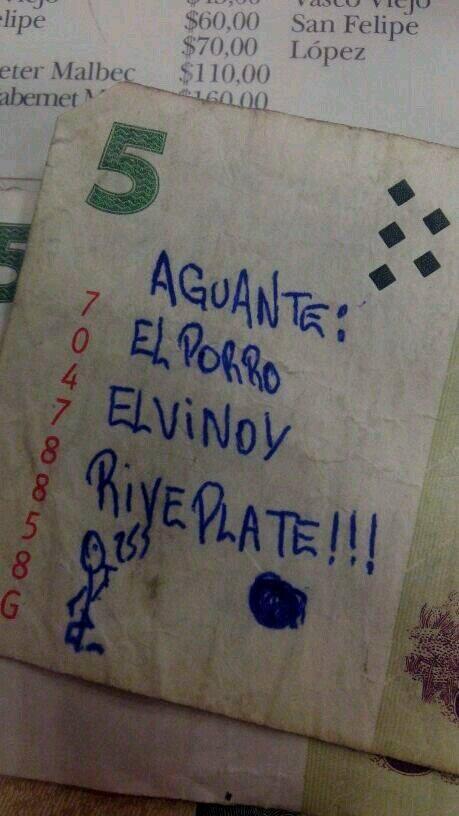 elipe
$60,00 San Felipe
$70,00 López
eter Malbec $110,00
abernet M $160,00
5
AGUANTE:
EL PORRO
EL ViNO Y
RiVE PLATE!!!
70478858G
5